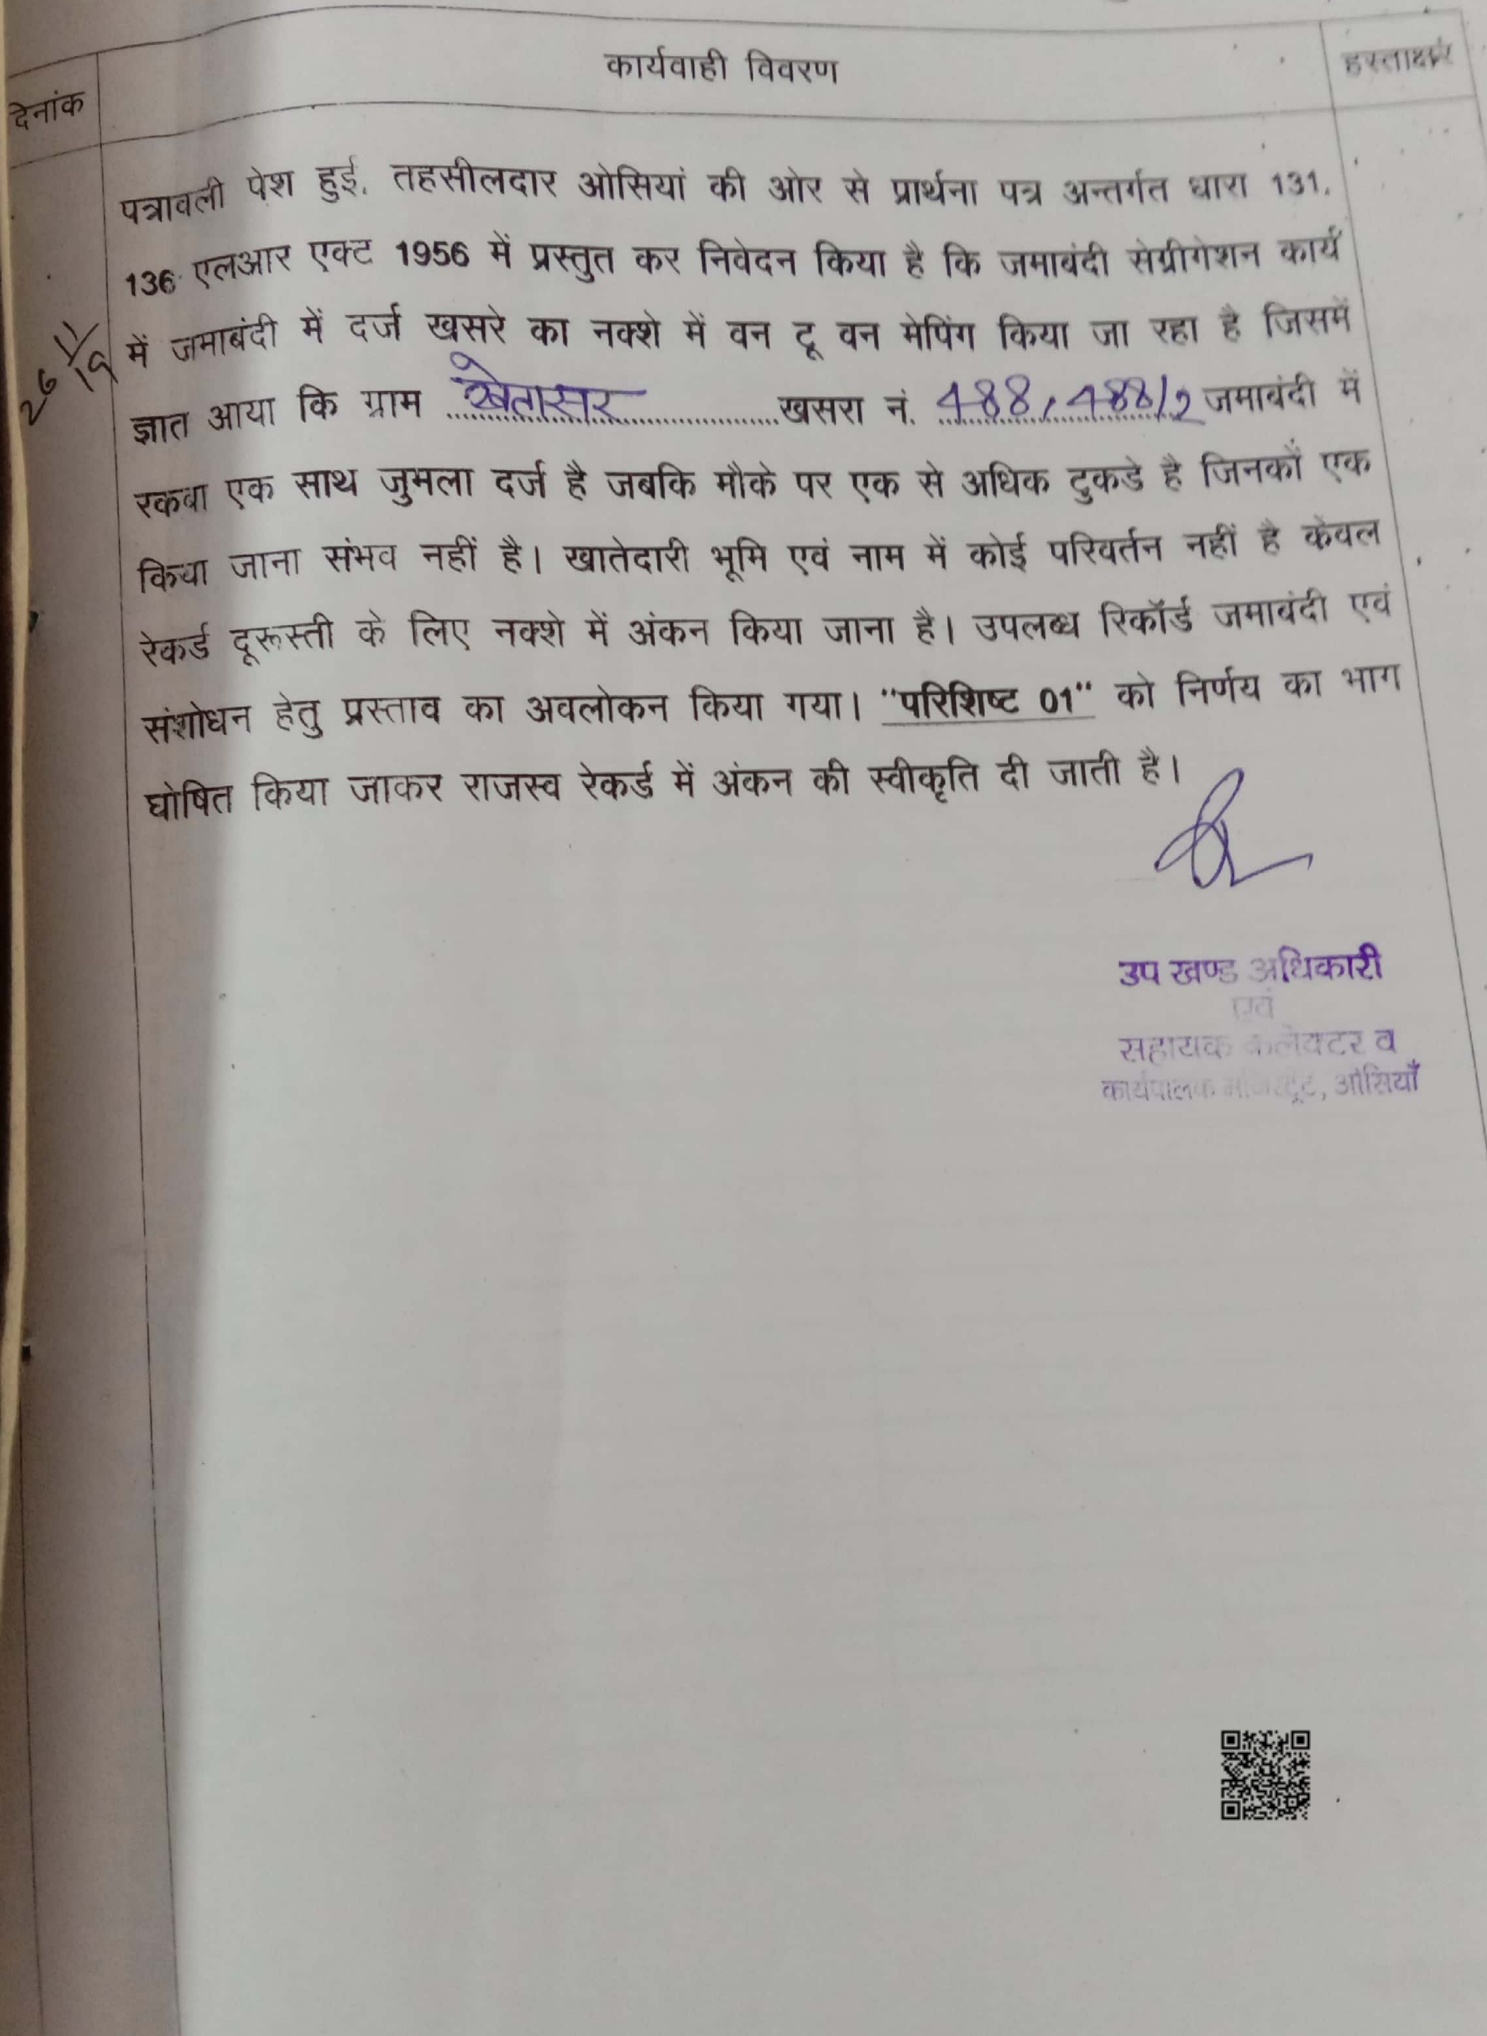 कार्यवाही विवरण
हस्ताक्षर
देनांक
पत्रावली पेश हुई, तहसीलदार ओसियां की ओर से प्रार्थना पत्र अन्तर्गत धारा 131,
136 एलआर एक्ट 1956 में प्रस्तुत कर निवेदन किया है कि जमाबंदी सेग्रीगेशन कार्य
में जमाबंदी में दर्ज खसरे का नक्शे में वन टू वन मेपिंग किया जा रहा है जिसमें
26/11/19
ज्ञात आया कि ग्राम खेतासर खसरा नं. 488, 488/2 जमाबंदी में
रकबा एक साथ जुमला दर्ज है जबकि मौके पर एक से अधिक टुकडे है जिनकों एक
किया जाना संभव नहीं है। खातेदारी भूमि एवं नाम में कोई परिवर्तन नहीं है केवल
रेकर्ड दूरूस्ती के लिए नक्शे में अंकन किया जाना है। उपलब्ध रिकॉर्ड जमाबंदी एवं
संशोधन हेतु प्रस्ताव का अवलोकन किया गया। "परिशिष्ट 01" को निर्णय का भाग
घोषित किया जाकर राजस्व रेकर्ड में अंकन की स्वीकृति दी जाती है।
उप खण्ड अधिकारी
एवं
सहायक कलेक्टर व
कार्यपालक मजिस्ट्रेट, ओसियाँ